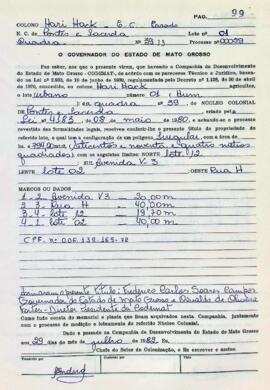 PAG. 99
COLONO Hari Hack - E. C. Casado
N. C. de Pontes e Lacerda Lote nº 01
Quadra nº 39 Processo nº
O GOVERNADOR DO ESTADO DE MATO GROSSO
Faz saber, aos que o presente virem, que havendo a Companhia de Desenvolvimento
do Estado de Mato Grosso - CODEMAT, de acordo com os pareceres Técnico e Jurídico, baseados
na Lei nº de de junho de 1980, regulamentada pelo Decreto nº 1.138, de 30 de abril
de 1970, concedido, ao colono Hari Hack agricultor,
o lote urbano número 01 (Hum
) da quadra nº 39, do NÚCLEO COLONIAL
de Pontes e Lacerda
Lei nº 4185, de 08 de maio de 1980, e achando-se o processo
revestido das formalidades legais, resolve conferir-lhe o presente título de propriedade do
referido lote, o qual tem a configuração de um polígono irregular, com a área
de 794,00 m² (Setecentos e noventa e quatro metros
quadrados) com os seguintes limites: NORTE lote 12
SUL Avenida V-3
LESTE lote 02 OESTE Rua H
MARCOS OU DADOS
1 - 2 Avenida V3 - 20,00 m
2 - 3 Rua H - 40,00 m
3 - 4 lote 12 - 19,70 m
4 - 1 lote 02 - 40,00 m
CPF. nº 006.139.165-72
Assinaram o presente título: Frederico Carlos Soares Campos
Governador do Estado de Mato Grosso e Osvaldo de Oliveira
Fortes - Diretor Presidente da Codemat
como tudo consta do memorial e planta que ficam arquivados nesta Companhia, juntamente
com o processo de medição e loteamento do referido Núcleo Colonial.
Dado e passado na Companhia de Desenvolvimento do Estado de Mato Grosso
aos 29 dias do mês de julho de 1982. Eu,
Chefe do Setor de Colonização, o fiz escrever e assino